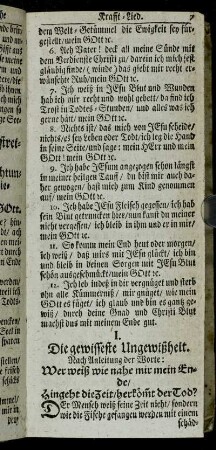 Krafft-Lied. 7
dem Welt-Getümmel die Ewigkeit sey fürgestellt/mein GOtt ꝛc.
6. Ach Vater! deck all meine Sünde mit
dem Verdienste Christi zu/ darein ich mich fest
gläubig finde/ das giebt mir recht erwünschte Ruh/mein GOtt ꝛc.
7. Ich weiß in JEsu Blut und Wunden
hab ich mir recht und wohl gebett/ da find ich
Trost in Todes-Stunden/ und alles was ich
gerne hätt/ mein GOtt ꝛc.
8. Nichts ist/ das mich von JEsu scheide/
nichts/ es sey Leben oder Tod/ ich leg die Hand
in seine Seite/und sage: mein HErr und mein
GOtt! mein GOtt ꝛc.
9. Ich habe JEsum angezogen schon längst
in meiner heilgen Tauff/ du bist mir auch daher gewogen/ hast mich zum Kind genommen
auf/ mein GOtt ꝛc.
10. Ich habe JEsu Fleisch gegessen/ ich hab
sein Blut getruncken hier/nun kanst du meiner
nicht vergessen/ ich bleib in ihm und er in mir/
mein GOtt ꝛc.
11. So komm mein End heut oder morgen/
ich weiß/ daß mirs mit JEsu glückt/ ich bin
und bleib in deinen Sorgen mit JEsu Blut
schön ausgeschmückt/mein GOtt ꝛc.
12. Ich leb indeß in dir vergnüget und sterb
ohn alle Kümmerniß/ mir gnüget/ wie mein
GOtt es füget/ ich glaub und bin es gantz gewiß/ durch deine Gnad und Christi Blut
machst dus mit meinem Ende gut.
I.
Die gewisseste Ungewißheit.
Nach Anleitung der Worte:
Wer weiß wie nahe mir mein Ende/
Hingeht die Zeit/herkömt der Tod?
Der Mensch weiß seine Zeit nicht/ sondern
wie die Fische gefangen werden mit einem
schäd-